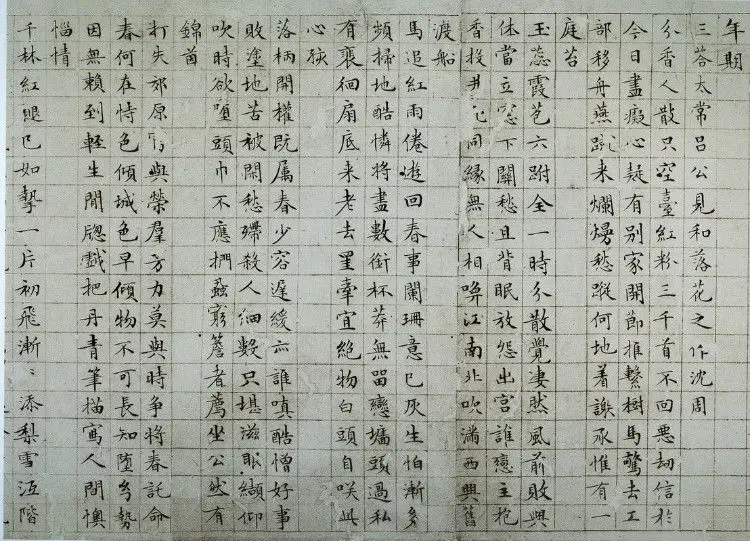 年期
三荅太常吕公見和落花之作沈周
分香人散只空臺紅粉三千首不回悪劫信於
今日盡癡心疑有别家開節推繫樹馬驚去工
部移舟燕蹴来爛熳愁蹤何地着謝承惟有一
庭苔
玉蕊霞苞六跗全一時分散覺凄然風前敗興
休當立窓下關愁且背眠放怨出宫誰戀主抱
香投井死同縁無人相喚江南北吹滿西興舊
渡船
馬追紅雨倦遊回春事闌珊意已灰生怕漸多
頻掃地酷憐將盡數銜杯莽無留戀墻頭過私
有褱徊扇底来老去罣牽宜絶物白頭自咲此
心孩
落柄開權既属春少容遅緩亦誰嗔酷憎好事
敗塗地苦被閑愁殢殺人細數只堪滋眼纈仰
吹時欲堕頭巾不應捫蝨窮簷者薦坐公然有
錦茵
打失郊原與榮羣芳力莫與時争將春託命
春何在恃色傾城色早傾物不可長知堕勢
因無賴到輕生閒牕戲把丹青筆描寫人間懊
惱情
千林紅褪已如一片初飛漸〻添梨雪沍階